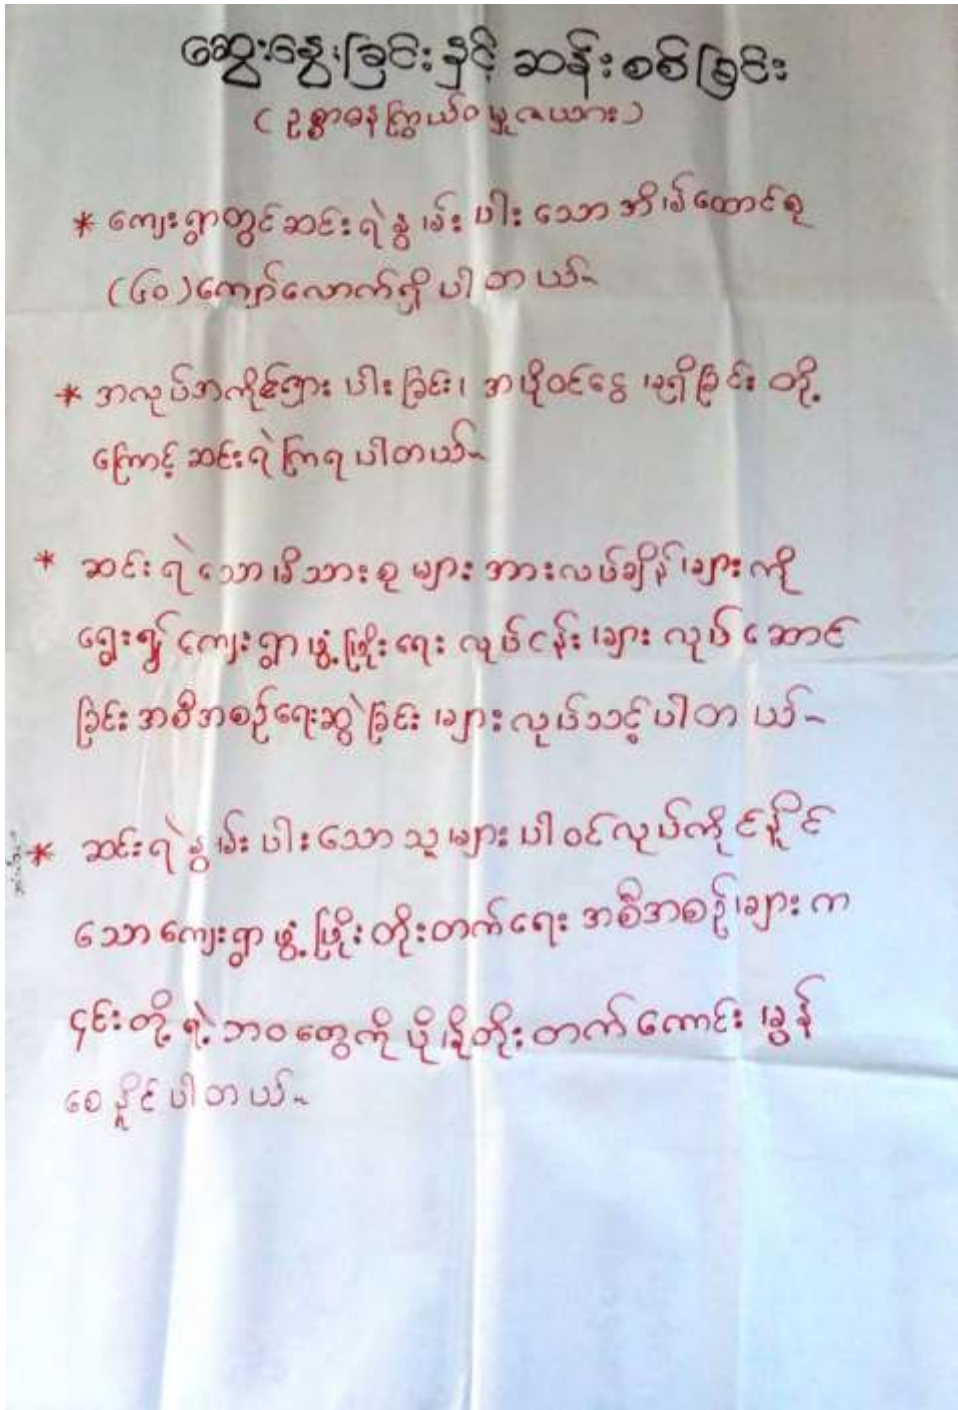 ဆွေးနွေးခြင်းနှင့် ဆန်းစစ်ခြင်း
(ဥစ္စာဓနကြွယ်ဝမှုဇယား)
* ကျေးရွာတွင်ဆင်းရဲနွမ်းပါးသောအိမ်ထောင်စု
(၆၀)ကျော်လောက်ရှိပါတယ်။
* အလုပ်အကိုင်ရှားပါးခြင်း၊ အပိုဝင်ငွေမရှိခြင်းတို့
ကြောင့်ဆင်းရဲကြရပါတယ်။
* ဆင်းရဲသောမိသားစုများအားလပ်ချိန်များကို
ရွေး၍ကျေးရွာဖွံ့ဖြိုးရေးလုပ်ငန်းများလုပ်ဆောင်
ခြင်းအစီအစဉ်ရေးဆွဲခြင်းများလုပ်သင့်ပါတယ်။
* ဆင်းရဲနွမ်းပါးသောသူများပါဝင်လုပ်ကိုင်နိုင်
သောကျေးရွာဖွံ့ဖြိုးတိုးတက်ရေးအစီအစဉ်များက
၎င်းတို့ရဲ့ဘဝတွေကိုပိုမိုတိုးတက်ကောင်းမွန်
စေနိုင်ပါတယ်။